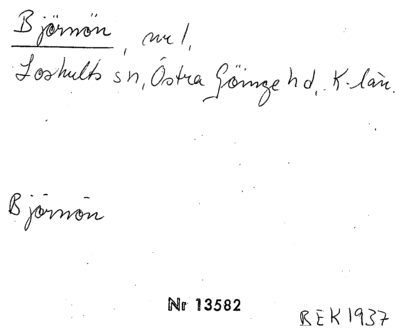 Björnön, nr 1,
Loshults sn, Östra Göinge hd, K-län.
Björnön
Nr 13582
BEK 1937